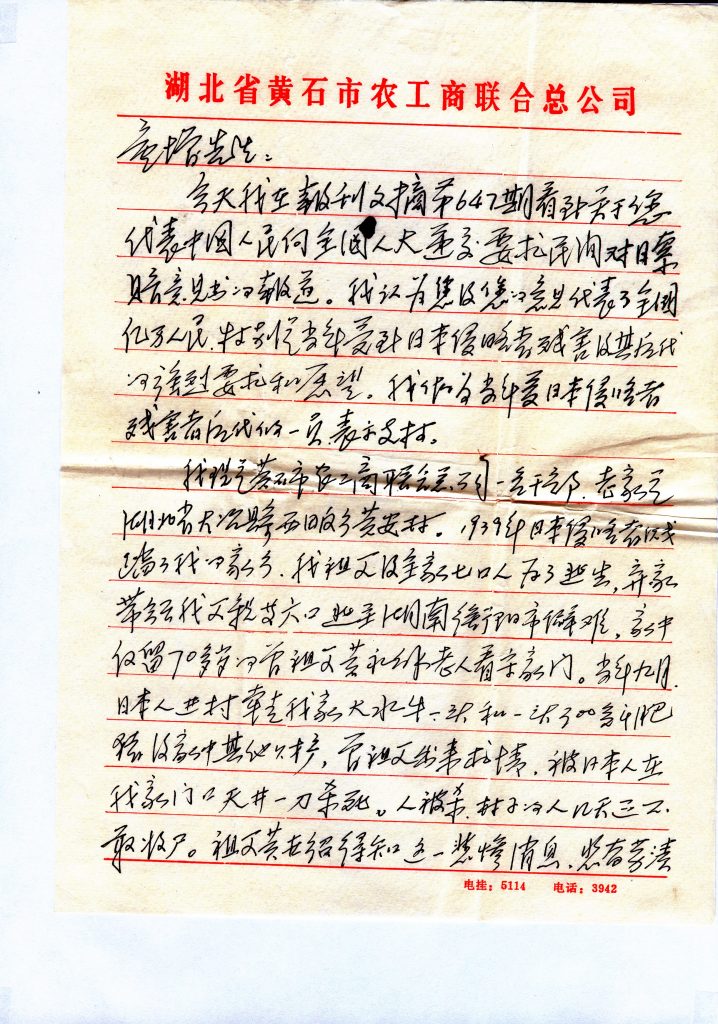 湖北省黄石市农工商联合总公司
童增先生：
今天我在報刊文摘第647期看到关于您
代表中國人民向全國人大递交要求民间对日索
赔意見书的報道。我认为您及您的意見代表了全国
亿万人民，特别是当年受到日本侵略者残害及其后代
的强烈要求和愿望。我作为当年受日本侵略者
残害者后代的一员表示支持。
我现是黄石市农工商联合总公司一名干部，老家是
湖北省大冶縣西畈乡黄安村。1939年日本侵略者
踏了我的家乡，我祖父及全家七口人为了逃生，弃家
带领我父親等六口逃至湖南衡阳市避难，家中
仅留70多岁的曾祖父黄礼 老人看守家门。当年九月，
日本人进村牵走我家大水牛一头和一头300多斤肥
猪及家中其他财产，曾祖父出来求情，被日本人在
我家门口天井一刀杀死。人被杀，村子的人几天三不
敢收尸。祖父黄 得知这一悲惨消息，悲奋
电挂：5114 电话：3942